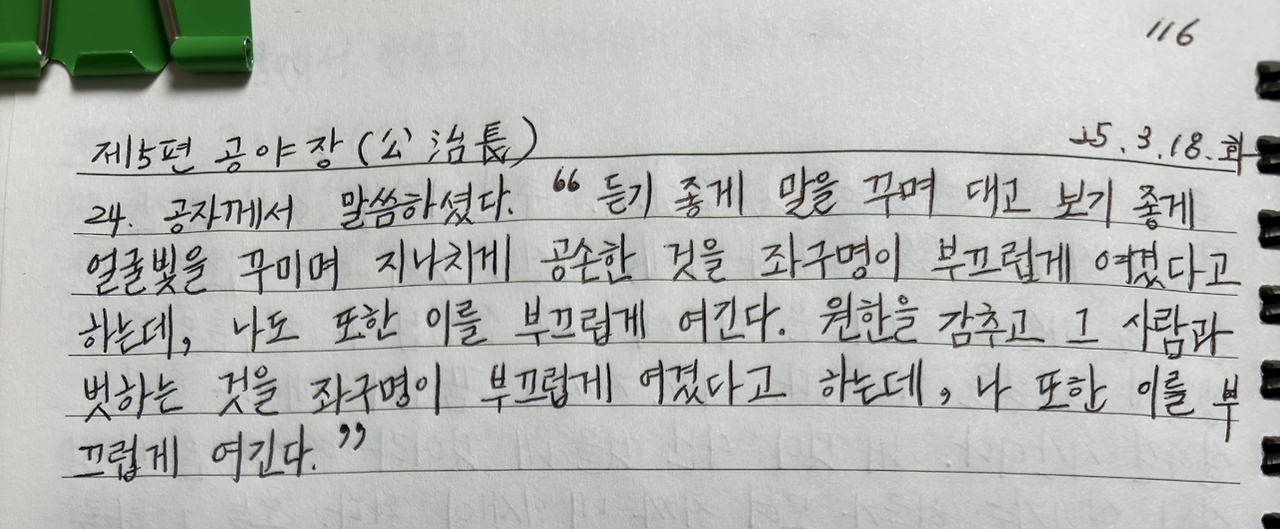 116
제5편 공야장(公冶長) 25.3.18.화
24. 공자께서 말씀하셨다. “듣기 좋게 말을 꾸며 대고 보기 좋게
얼굴빛을 꾸미며 지나치게 공손한 것을 좌구명이 부끄럽게 여겼다고
하는데, 나도 또한 이를 부끄럽게 여긴다. 원한을 감추고 그 사람과
벗하는 것을 좌구명이 부끄럽게 여겼다고 하는데, 나 또한 이를 부
끄럽게 여긴다.”